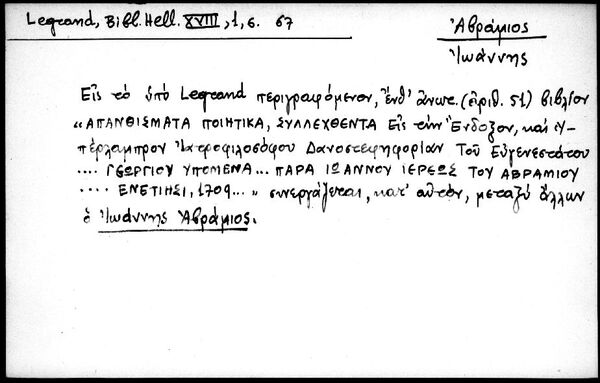 Legrand, Bibl. Hell. XVIII, 1, σ. 67
Ἀβράμιος
Ἰωάννης
Εἰς τὸ ὑπὸ Legrand περιγραφόμενον, ἔνθ' ἄνωτ. (ἀριθ. 51) βιβλίον
"ΑΠΑΝΘΙΣΜΑΤΑ ΠΟΙΗΤΙΚΑ, ΣΥΛΛΕΧΘΕΝΤΑ Εἰς τὴν Ἔνδοξον, καὶ ὑ-
πέρλαμπρον Ἰατροφιλοσόφου Δαφνοστεφηφορίαν Τοῦ Εὐγενεστάτου
.... ΓΕΩΡΓΙΟΥ ΥΠΟΜΕΝΑ... ΠΑΡΑ ΙΩΑΝΝΟΥ ΙΕΡΕΩΣ ΤΟΥ ΑΒΡΑΜΙΟΥ
.... ΕΝΕΤΙΗΣΙ, 1709..." συνεργάζεται, κατ' αὐτόν, μεταξὺ ἄλλων
ὁ Ἰωάννης Ἀβράμιος.